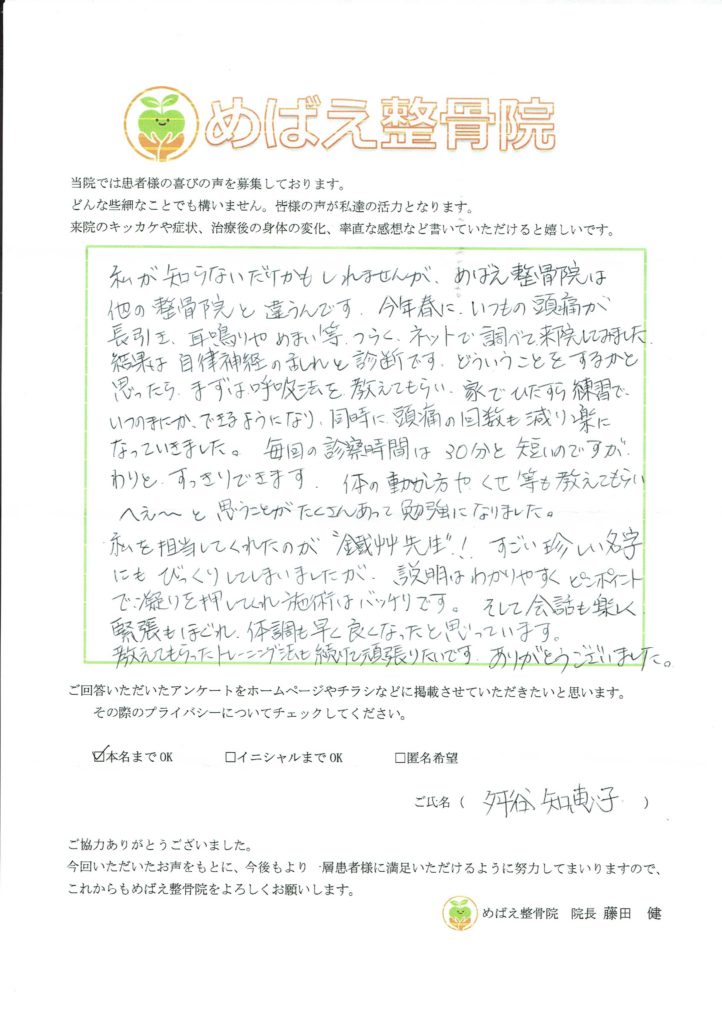 めばえ整骨院
当院では患者様の喜びの声を募集しております。
どんな些細なことでも構いません。皆様の声が私達の活力となります。
来院のキッカケや症状、治療後の身体の変化、率直な感想など書いていただけると嬉しいです。
私が知らないだけかもしれませんが、めばえ整骨院は
他の整骨院と違うんです。今年春に、いつもの頭痛が
長引き、耳鳴りやめまい等、つらく、ネットで調べて来院してみました。
結果は自律神経の乱れと診断です。どういうことをするかと
思ったら、まずは呼吸法を教えてもらい、家でひたすら練習で、
いつのまにか、できるようになり、同時に頭痛の回数も減り楽に
なっていきました。毎回の診察時間は30分と短いのですが、
わりと、すっきりできます。体の動かし方や、くせ等も教えてもらい
へぇ〜〜と思うことがたくさんあって勉強になりました。
私を担当してくれたのが"鐵艸先生"!! すごい珍しい名字
にもびっくりしてしまいましたが、説明はわかりやすくピンポイント
で凝りを押してくれ施術はバッチリです。そして会話も楽しく
緊張もほぐれ、体調も早く良くなったと思っています。
教えてもらったトレーニング法も続けて頑張りたいです。ありがとうございました。
ご回答いただいたアンケートをホームページやチラシなどに掲載させていただきたいと思います。
その際のプライバシーについてチェックしてください。
☑本名までOK □イニシャルまでOK □匿名希望
ご氏名（ 谷 知恵子 ）
ご協力ありがとうございました。
今回いただいたお声をもとに、今後もより一層患者様に満足いただけるように努力してまいりますので、
これからもめばえ整骨院をよろしくお願いします。
めばえ整骨院 院長 藤田 健